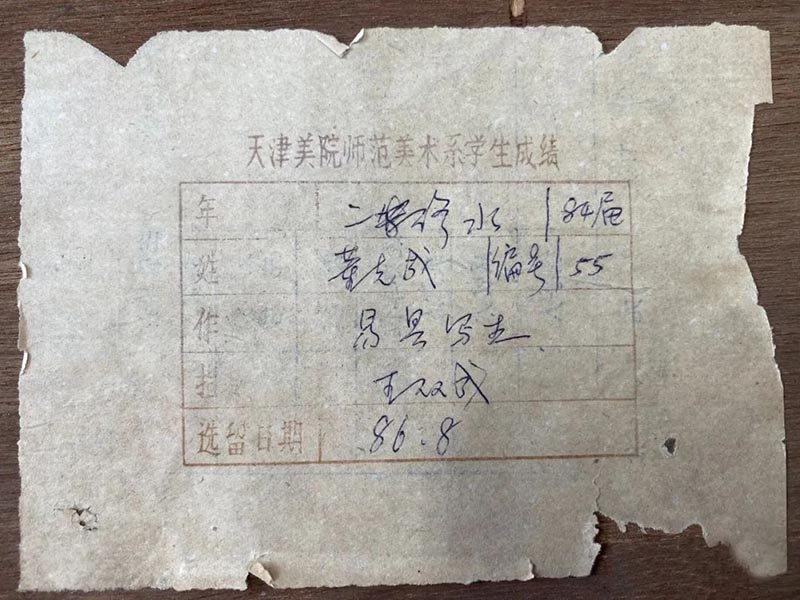 天津美院师范美术系学生成结
年 二 水 84届
姓 董克成 编号 55
作 易县写生
王双成
选留日期 86.8